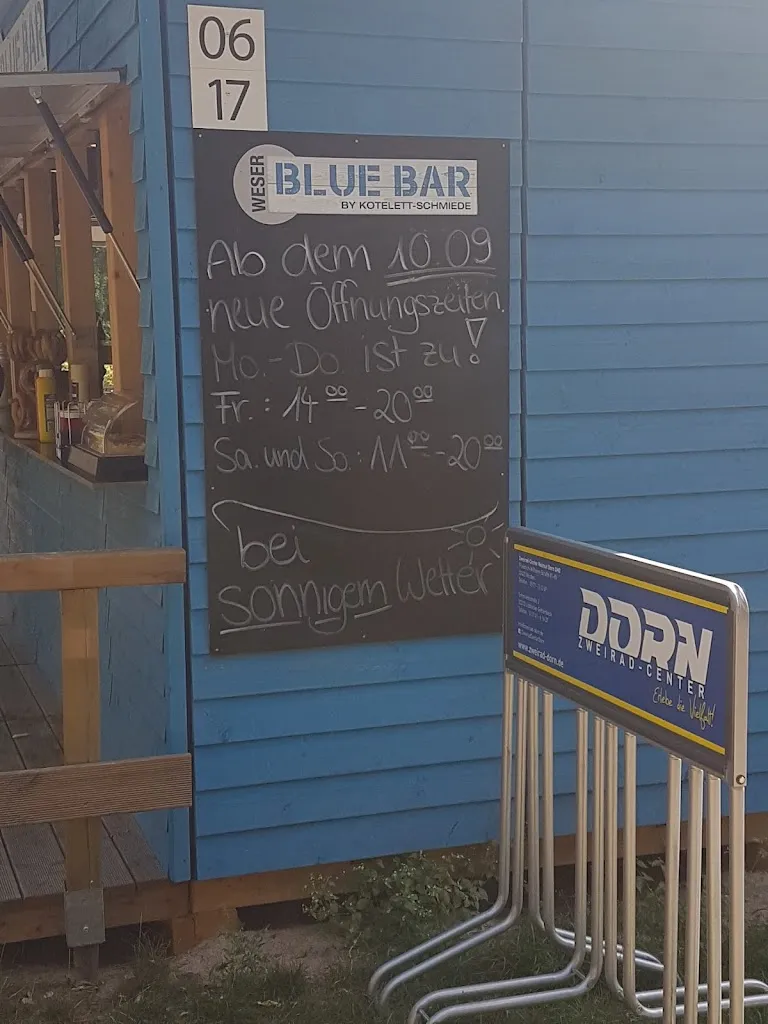 BLUE BAR
06
17
WESER
BLUE BAR
BY KOTELETT-SCHMIEDE
Ab dem 10.09
neue Öffnungszeiten
Mo.-Do ist zu!
Fr.: 14 00 - 20 00
Sa. und So.: 11 00 - 20 00
bei
sonnigem Wetter
DORN
ZWEIRAD-CENTER
Erlebe die Vielfalt!
www.zweirad-dorn.de